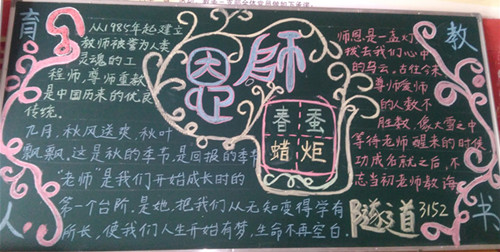 育
人
教
书
師恩
春蚕
蜡炬
从1985年起建立
教师被誉为人类
灵魂的工
程师,尊师重教
是中国历来的优良
传统。
九月,秋风送爽,秋叶
飘飘。这是秋的季节,是回报的季节
“老师”是我们开始成长时的
第一个台阶,是她,把我们从无知变得学有
所长,使我们人生开始有梦,生命不再空白。
师恩是一盏灯
拨去我们心中
的乌云,古往今来
尊师爱师
的人数不
胜数,像大雪之中
等待老师醒来的时候
功成名就之后,不
忘当初老师教诲
隧道3152